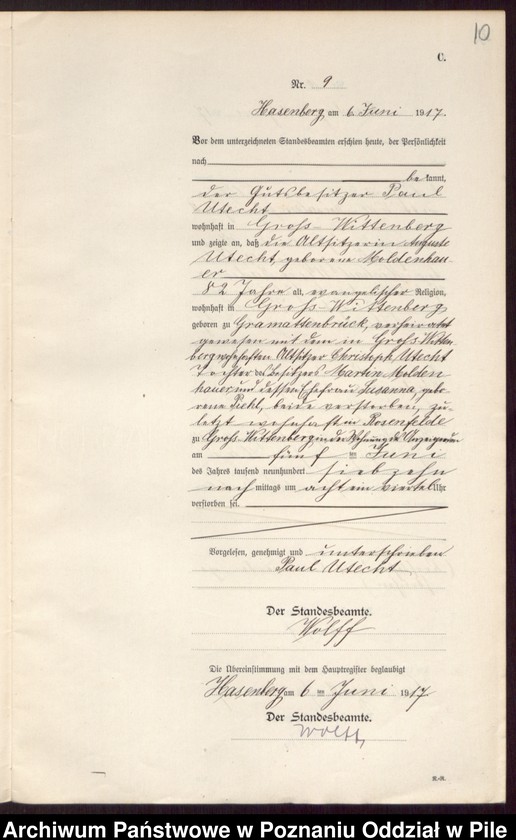 10
C.
Nr. 9
Hasenberg am 6 Juni 1917.
Vor dem unterzeichneten Standesbeamten erschien heute, der Persönlichkeit
nach
bekannt,
der Gutsbesitzer Paul
Utecht
wohnhaft in Groß-Wittenberg
und zeigte an, daß die Altsitzerin Auguste
Utecht, geborene Moldenhau-
er
82 Jahre alt, evangelischer Religion,
wohnhaft in Groß-Wittenberg
geboren zu Gramattenbrück, verheiratet
gewesen mit dem in Groß Witten-
berg Altsitzer Christoph Utecht
Tochter des Besitzers Martin Molden
hauer und dessen Ehefrau Susanna, gebo-
rene Piehl, beide verstorben, zu-
letzt wohnhaft in Rosenfelde
zu Groß-Wittenberg in der Wohnung des Anzeigenden
am fünf ten Juni
des Jahres tausend neunhundert siebzehn
nach mittags um acht ein viertel Uhr
verstorben sei.
Vorgelesen, genehmigt und unterschrieben
Paul Utecht.
Der Standesbeamte.
Wolff
Die Übereinstimmung mit dem Hauptregister beglaubigt
Hasenberg am 6 ten Juni 1917
Der Standesbeamte.
Wolff,
R.-R.
Archiwum Państwowe w Poznaniu Oddział w Pile